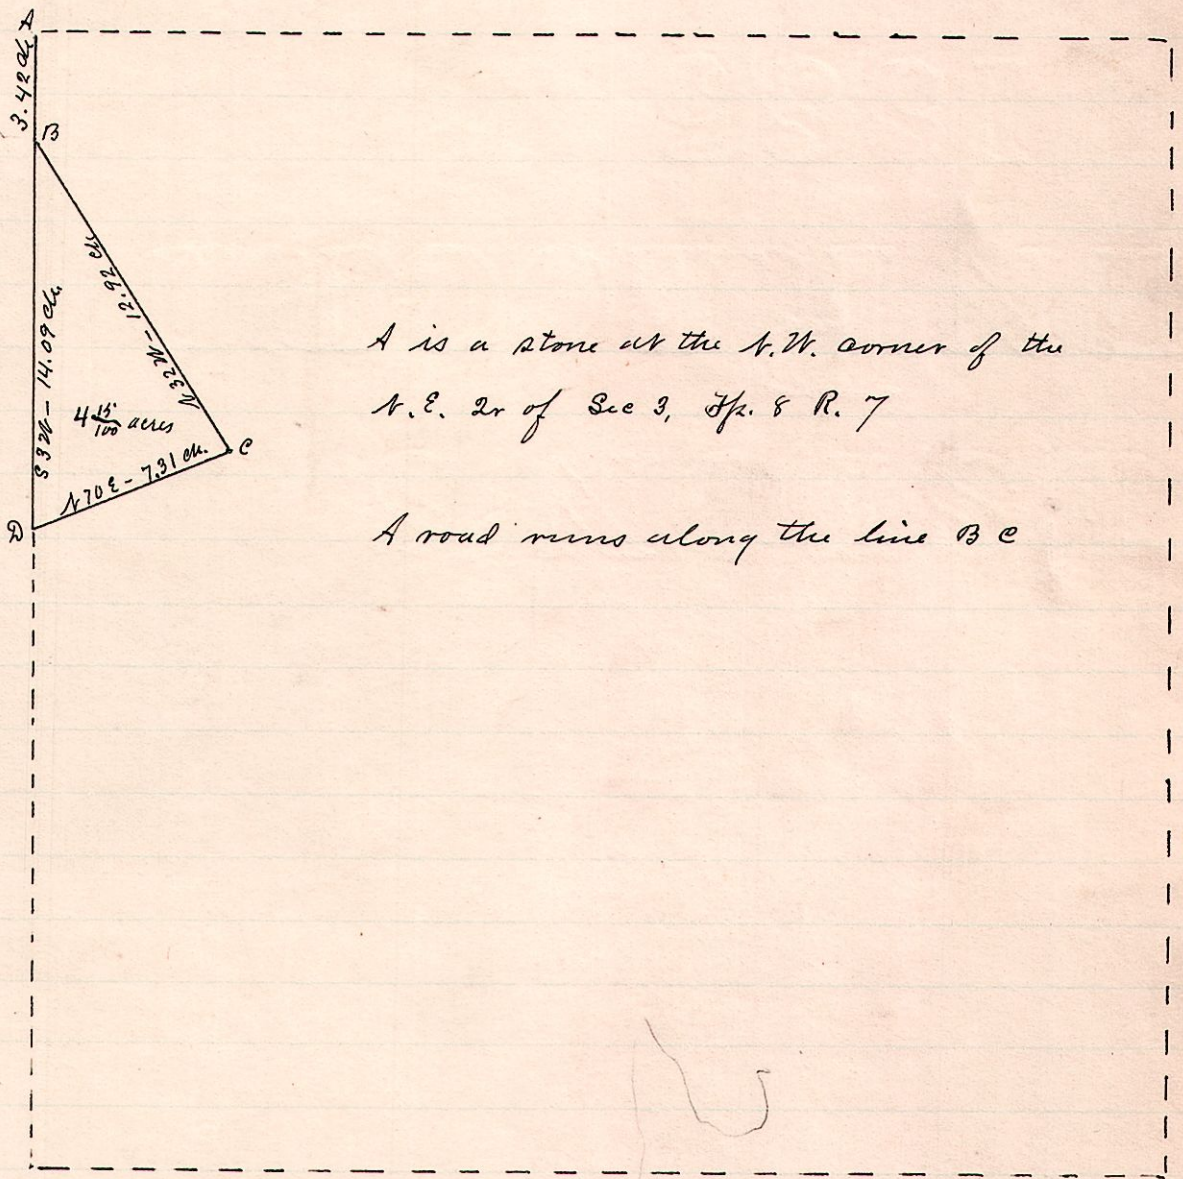 A
3.42 ch.
B
N 32 W – 12.92 ch.
S 3 W – 14.09 ch.
4 15/100 acres
N 70 E – 7.31 ch.
C
D
A is a stone at the N.W. corner of the
N.E. 2r of Sec 3, Tp. 8 R. 7
A road runs along the line B C